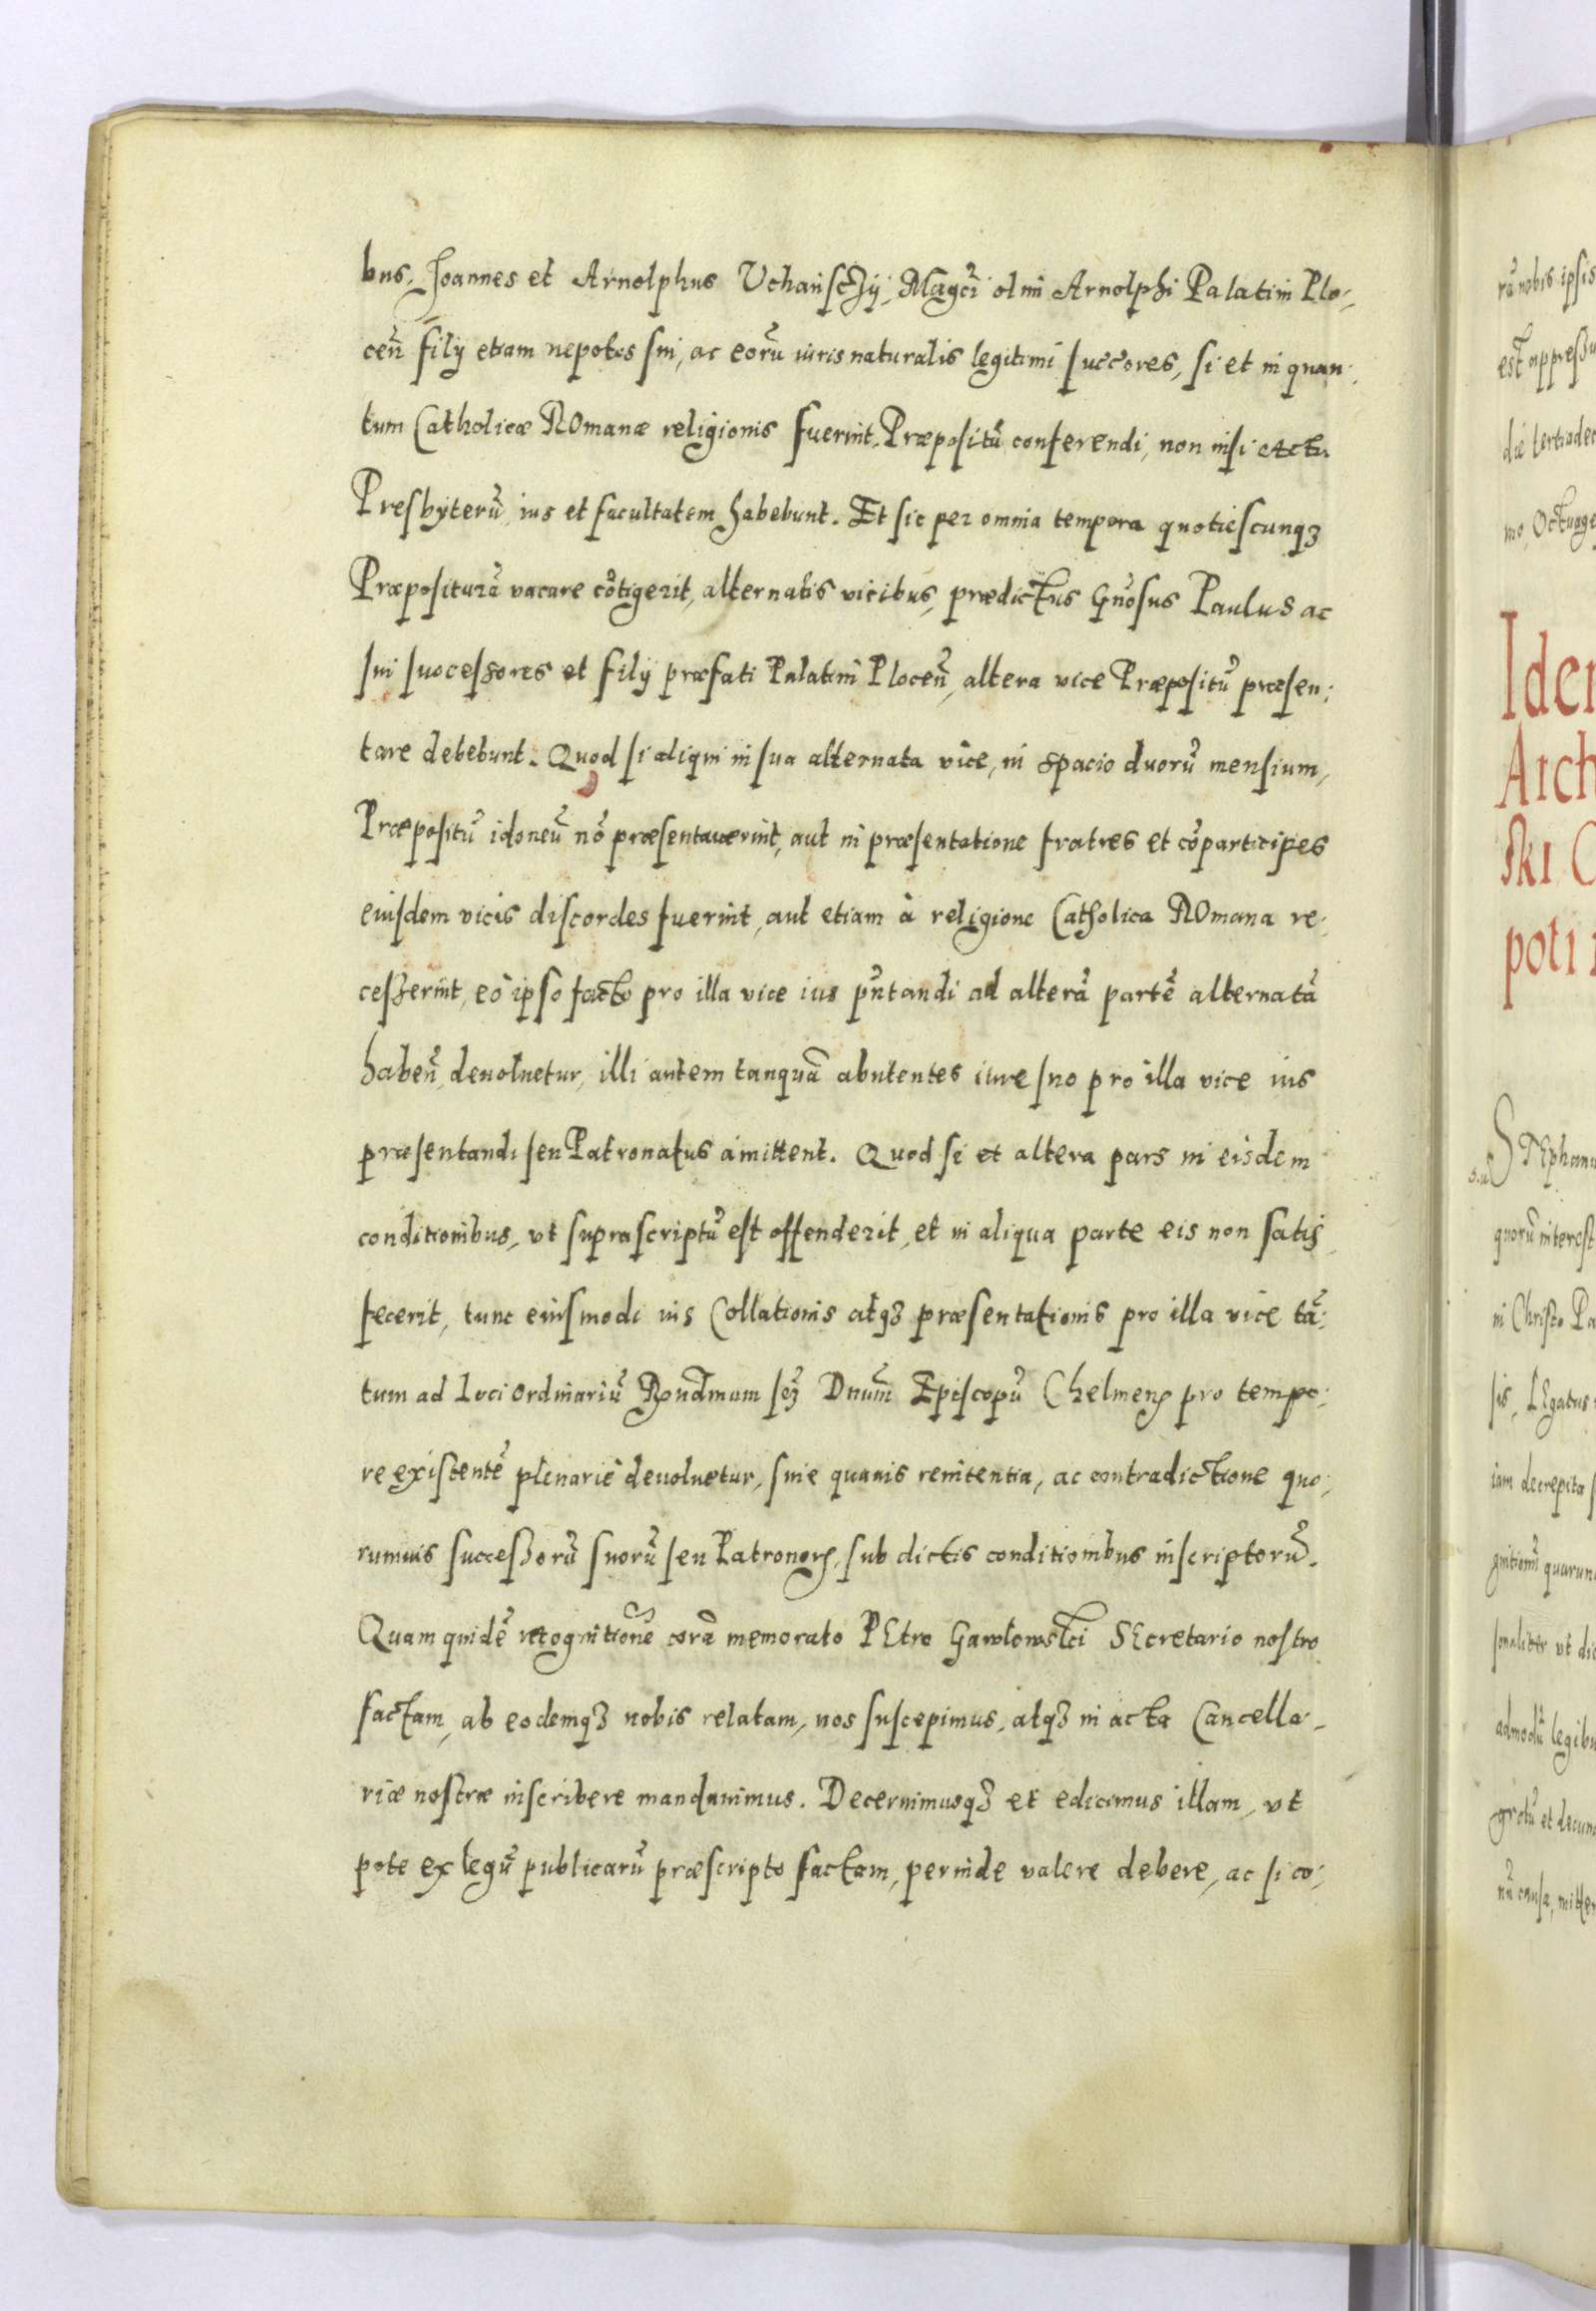 bus, Joannes et Arnolphus Vchańscȝij, Magcĩ olim Arnolphi Palatini Plo,
ceñ filij etiam nepotes sui, ac eorũ iuris naturalis legitimi succores, si et in quan,
tum Catholicæ ROmanæ religionis fuerint. Præpositũ conferendi, non nisi Actu
Presbyterũ, ius et facultatem habebunt. Et sic per omnia tempora quotiescunqȝ
Præpositurã vacare cõtigerit, alternatis vicibus, prædictus Gñosus Paulus ac
sui successores et filij præfati Palatini Ploceñ, altera vice Præpositũ præsen,
tare debebunt. Quod si aliqui in sua alternata vice, in spacio duorũ mensium,
Præpositũ idoneũ nõ præsentauerint, aut in præsentatione fratres et cõparticipes
eiusdem vicis discordes fuerint, aut etiam à religione Catholica ROmana re,
cesserint, eo ipso facto pro illa vice ius pñtandi ad alterã partẽ alternatã
habeñ, deuoluetur, illi autem tanquã abutentes iure suo pro illa vice ius
præsentandi seu Patronatus amittent. Quod si et altera pars in eisdem
conditionibus, vt suprascriptũ est offenderit, et in aliqua parte eis non satis
fecerit, tunc eiusmodi ius Collationis atqȝ præsentationis pro illa vice tã,
tum ad loci ordinariũ Rnđmum scȝ Dnum̃ Episcopũ Chelmenꝭ pro tempo,
re existentẽ plenariè deuoluetur, sine quauis renitentia, ac contradictione quo,
rumuis successorũ suorũ seu Patronorꝝ, sub dictis conditionibus inscriptorũ.
Quam quidẽ recognitionẽ corã memorato PEtro Gawłowski SEcretario nostro
factam, ab eodemqȝ nobis relatam, nos suscepimus, atqȝ in acta Cancella,
riæ nostræ inscribere mandauimus. Decernimusqȝ et edicimus illam, vt
pote ex legũ publicarũ præscripto factam, perinde valere debere, ac si co,
rã nobis ipsis
est appressu
die tertiadec
mo, Octuage
Iden
Arch
ski C
poti
STEphanu
quorũ interest
in Christo Pa
sis, LEgatus
iam decrepita
gnitionĩ quarun
sonaliter vt dic
admodũ legibu
gratũ et
nũ causa, mitter